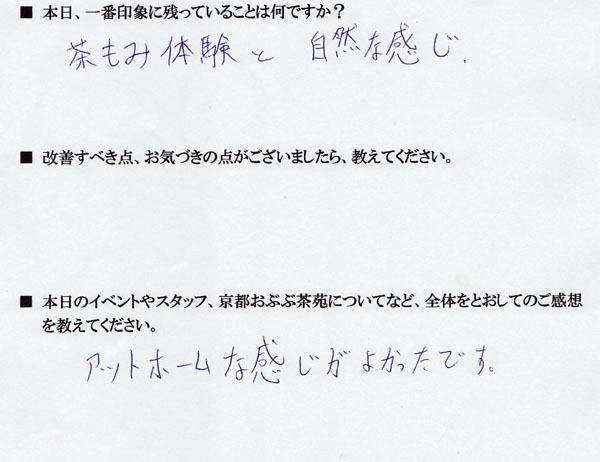 ■ 本日、一番印象に残っていることは何ですか？
茶もみ体験と 自然な感じ.
■ 改善すべき点、お気づきの点がございましたら、教えてください。
■ 本日のイベントやスタッフ、京都おぶぶ茶苑についてなど、全体をとおしてのご感想
を教えてください。
アットホームな感じがよかったです。